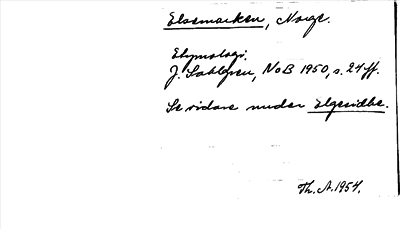 Elsesmarken, Norge.
Etymologi.
J. Sahlgren, NoB 1950, s. 24 ff.
Se vidare under Elgesether.
Th. A. 1954.